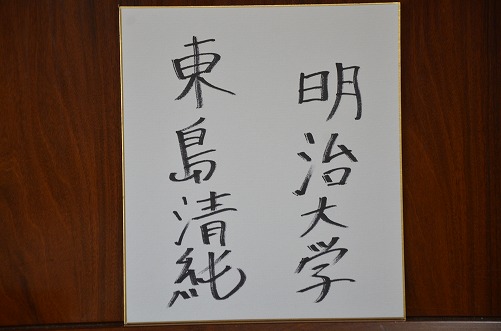 明治大学
東島清純